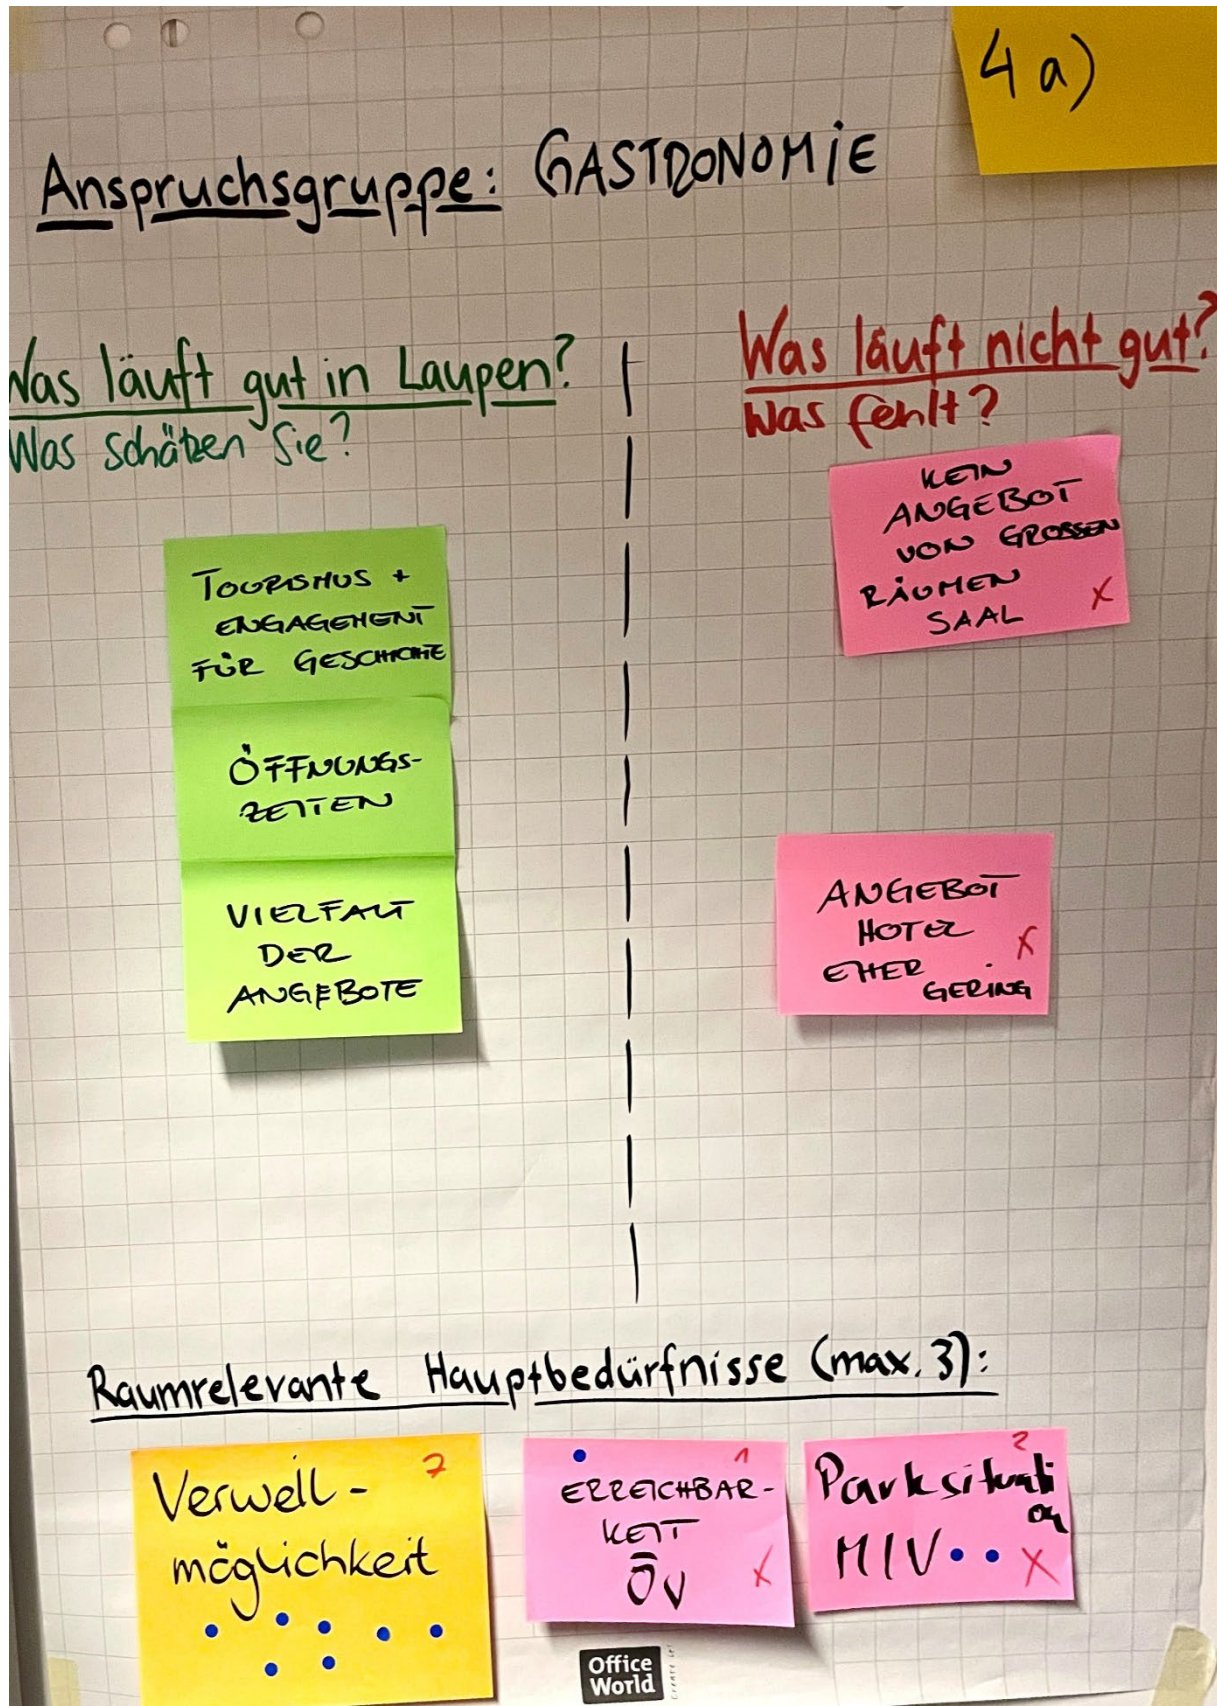 4 a)
Anspruchsgruppe: GASTRONOMiE
Was läuft gut in Laupen?
Was schätzen Sie?
TOURISMUS +
ENGAGEMENT
FÜR GESCHICHTE
ÖFFNUNGS-
ZEITEN
VIELFALT
DER
ANGEBOTE
Was läuft nicht gut?
Was fehlt?
KEIN
ANGEBOT
VON GROSSEN
RÄUMEN
SAAL X
ANGEBOT
HOTEL
EHER X
GERING
Raumrelevante Hauptbedürfnisse (max. 3):
Verweil- 7
möglichkeit
1
ERREICHBAR-
KEIT
ÖV X
2
Parksituati
on
MIV X
Office
World